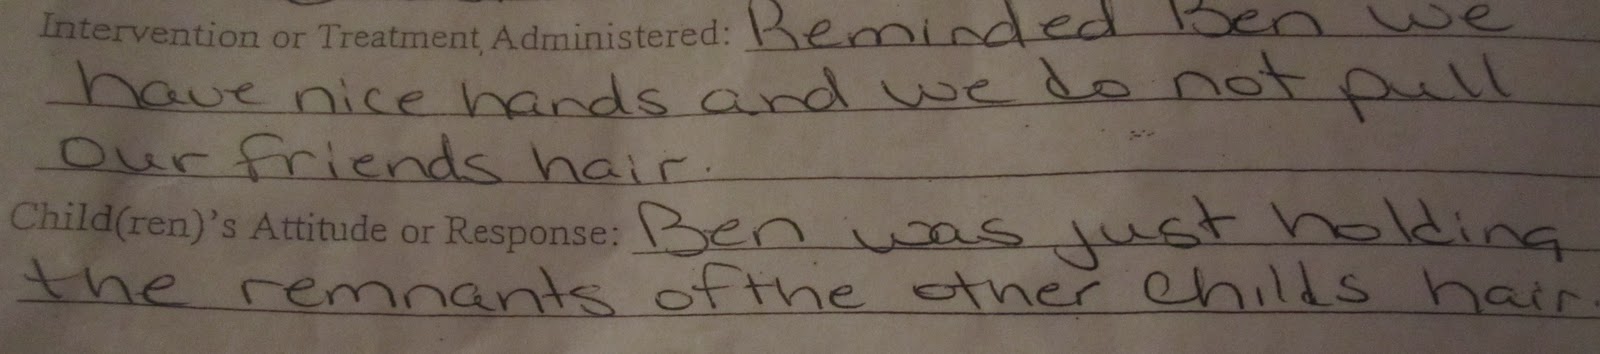 Intervention or Treatment Administered: Reminded Ben we
have nice hands and we do not pull
our friends hair.
Child(ren)'s Attitude or Response: Ben was just holding
the remnants of the other childs hair.